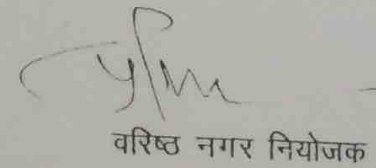 वरिष्ठ नगर नियोजक